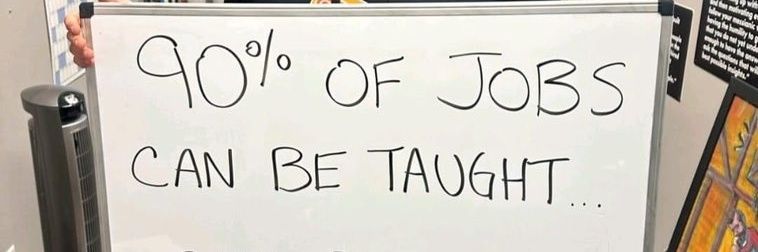 90% OF JOBS
CAN BE TAUGHT...